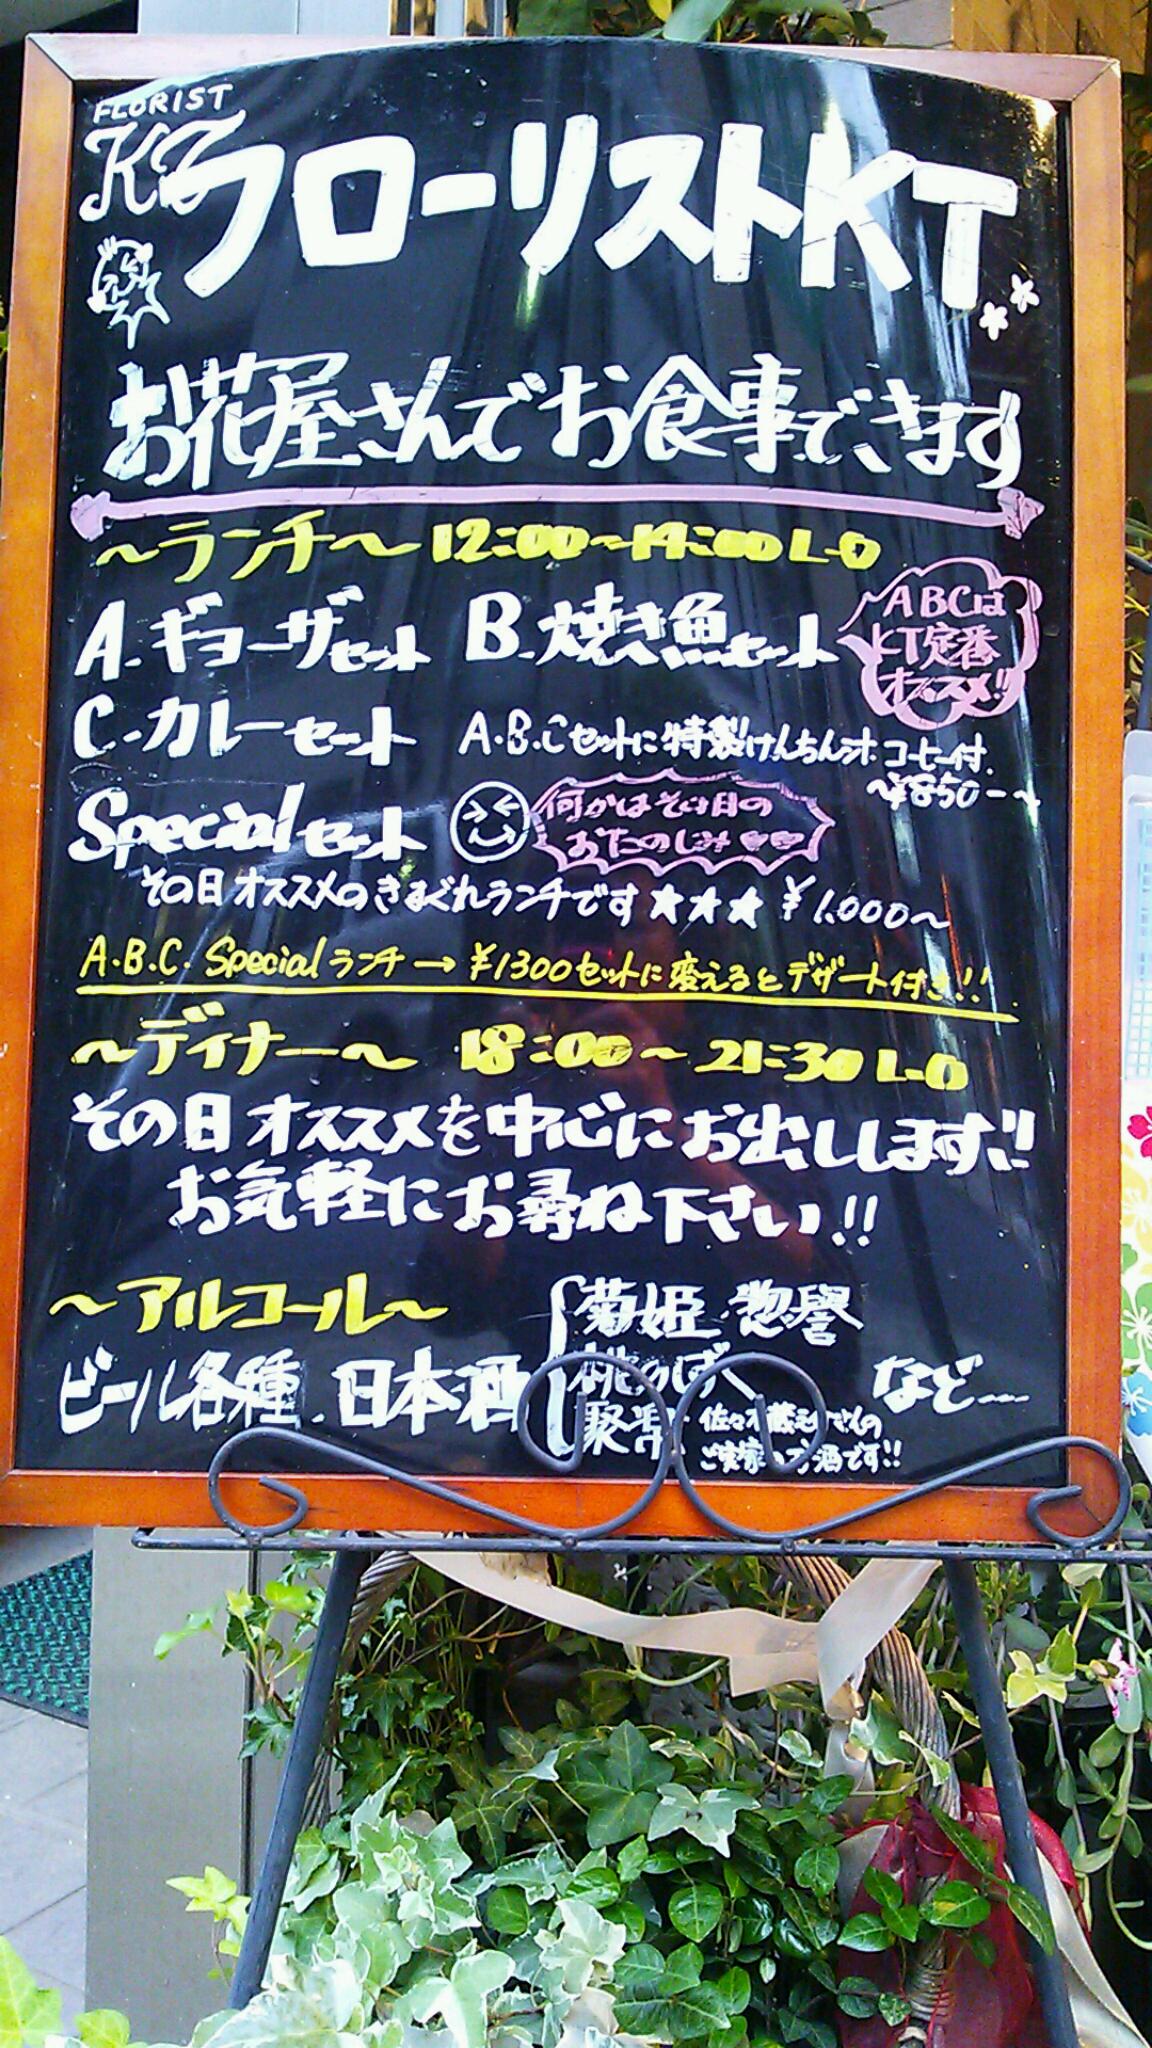 FLORIST
KT
フローリストKT
お花屋さんでお食事できます
～ランチ～ 12:00～14:00 L-O
A.ギョーザセット B.焼き魚セット
ABCは
KT定番
オススメ!!
C.カレーセット A.B.Cセットに特製けんちん汁 コーヒー付.
～¥850-～
Specialセット
何かはその日の
おたのしみ♥♥
その日オススメのきまぐれランチです★★★ ¥1.000～
A.B.C. Specialランチ→¥1300セットに変えるとデザート付き!!
～ディナー～ 18:00～21:30 L-O
その日オススメを中心にお出しします!!
お気軽にお尋ね下さい!!
～アルコール～
ビール各種. 日本酒
菊姫 惣誉
桃のしずく
聚楽 佐々木蔵之介さんの
ご実家のお酒です!!
など…